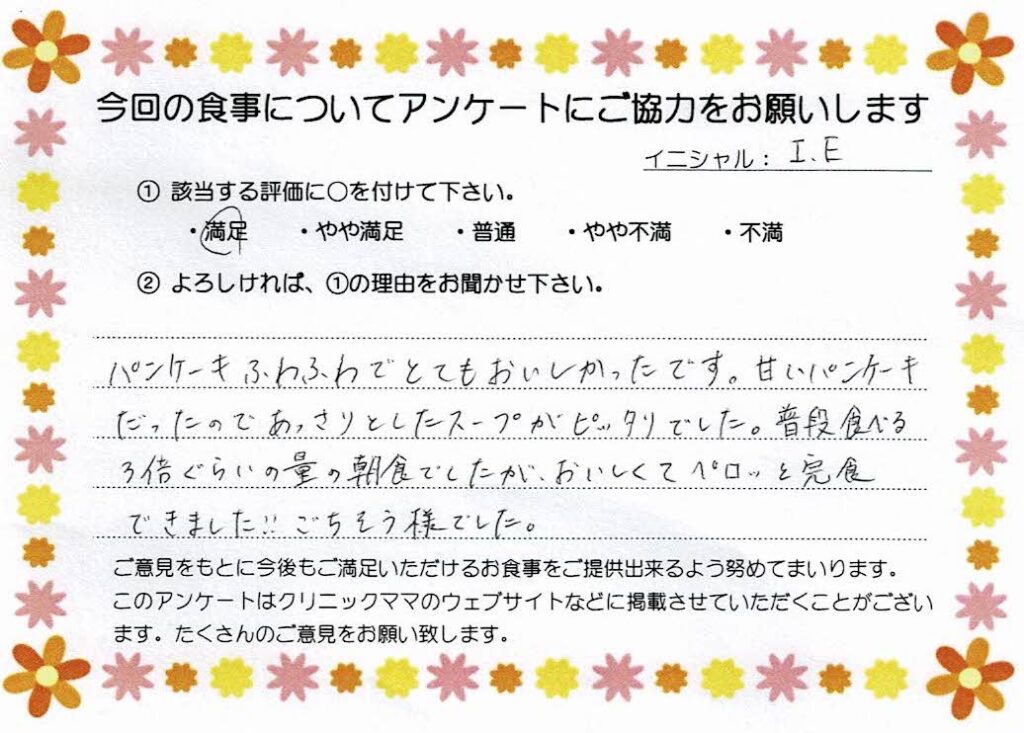 今回の食事についてアンケートにご協力をお願いします
イニシャル： I.E
① 該当する評価に○を付けて下さい。
・満足 ・やや満足 ・普通 ・やや不満 ・不満
② よろしければ、①の理由をお聞かせ下さい。
パンケーキふわふわでとてもおいしかったです。甘いパンケーキ
だったのであっさりとしたスープがピッタリでした。普段食べる
3倍ぐらいの量の朝食でしたが、おいしくてペロッと完食
できました!! ごちそう様でした。
ご意見をもとに今後もご満足いただけるお食事をご提供出来るよう努めてまいります。
このアンケートはクリニックママのウェブサイトなどに掲載させていただくことがござい
ます。たくさんのご意見をお願い致します。